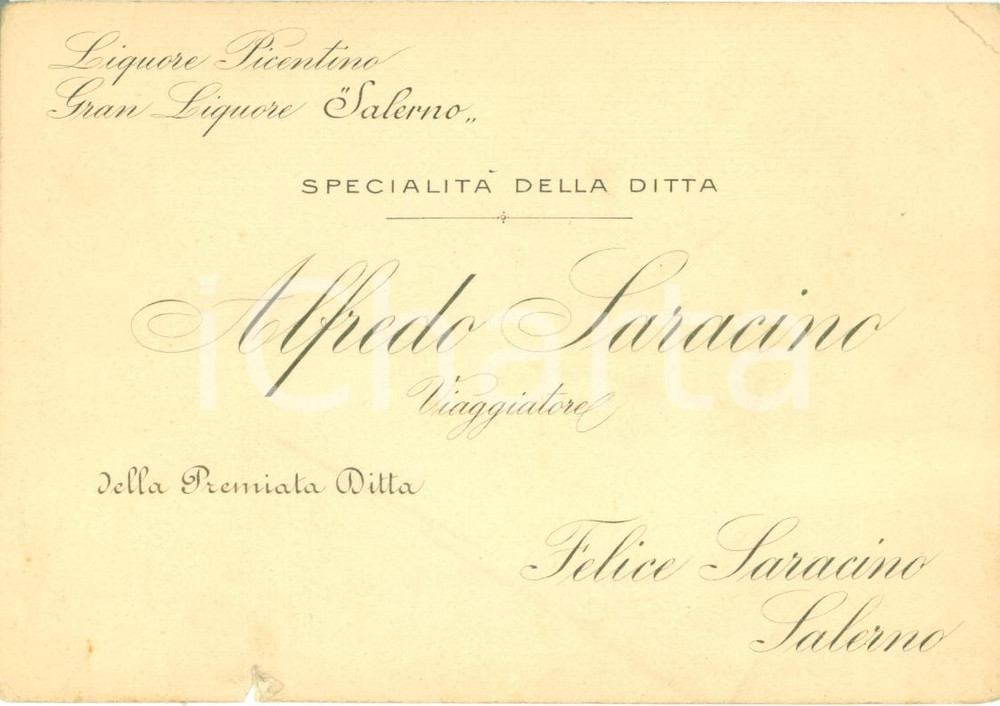 Liquore Picentino
Gran Liquore "Salerno„
SPECIALITÀ DELLA DITTA
Alfredo Saracino
Viaggiatore
della Premiata Ditta
Felice Saracino
Salerno
iCharta